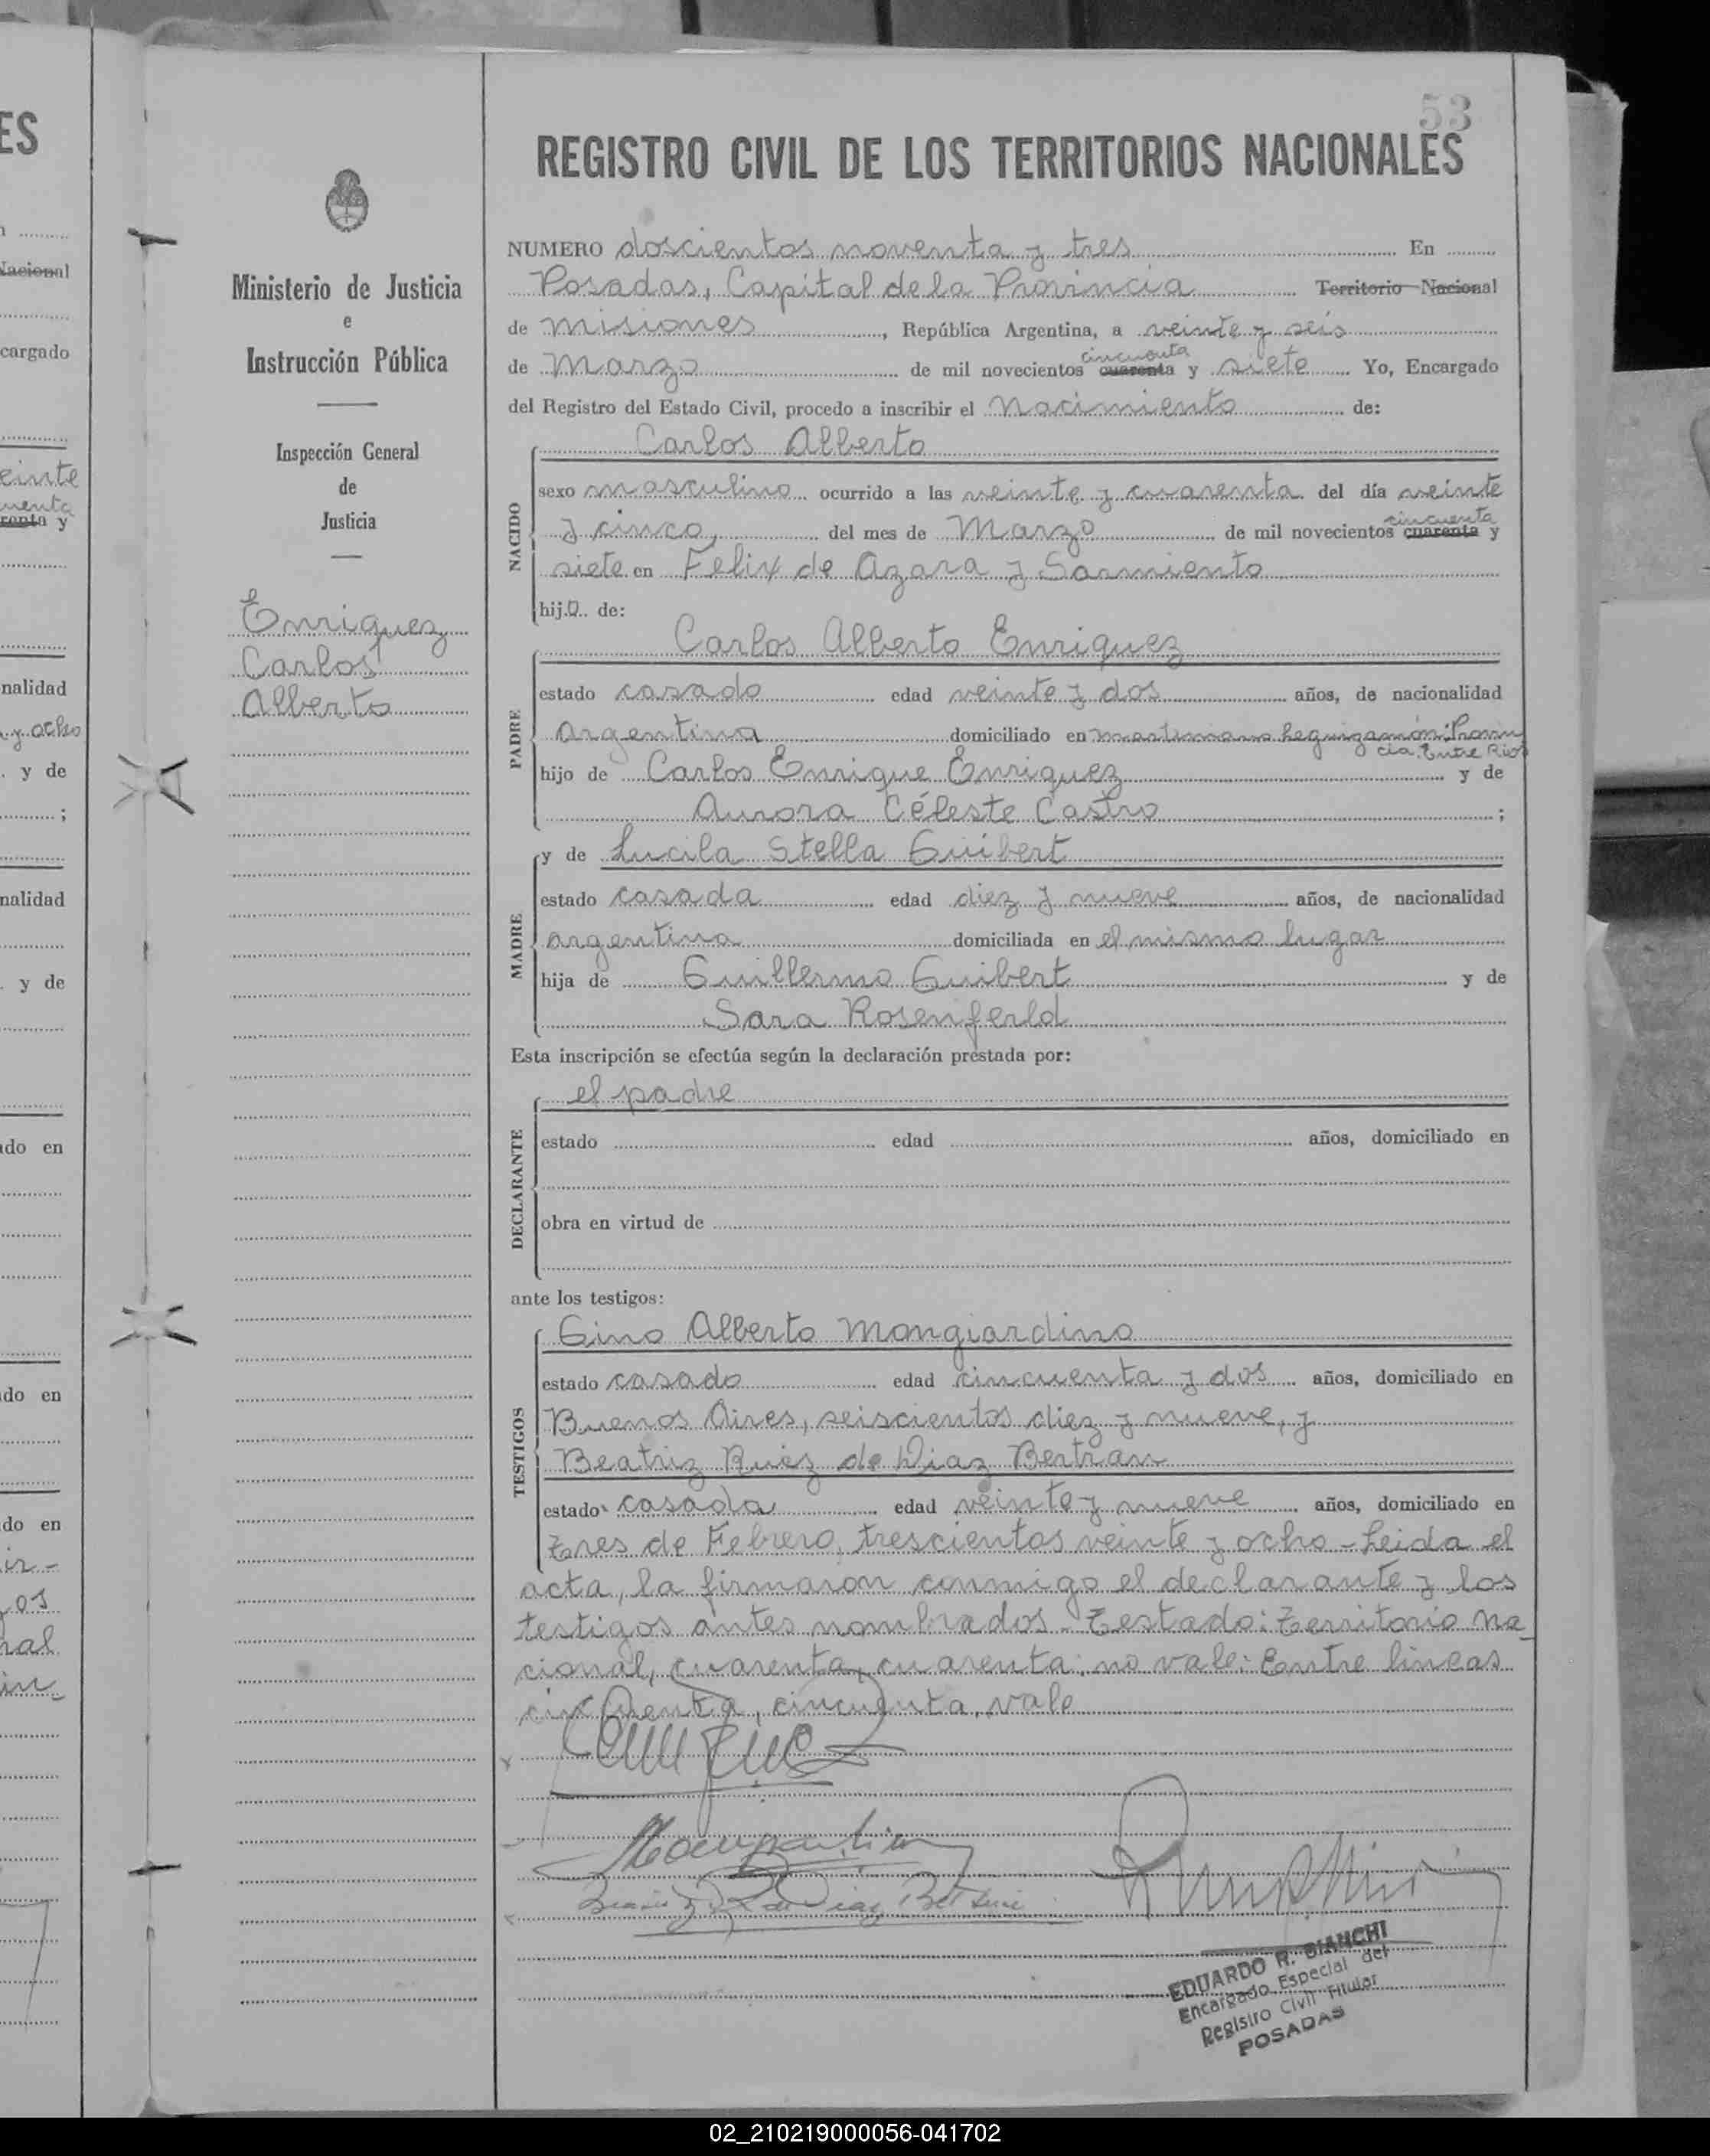 53
REGISTRO CIVIL DE LOS TERRITORIOS NACIONALES
Ministerio de Justicia
e
Instrucción Pública
Inspección General
de
Justicia
Enriquez
Carlos
Alberto
NUMERO doscientos noventa y tres En
Posadas, Capital de la Provincia Territorio Nacional
de Misiones, República Argentina, a veinte y seis
de Marzo de mil novecientos cuarenta cincuenta y siete Yo, Encargado
del Registro del Estado Civil, procedo a inscribir el Nacimiento de:
NACIDO
Carlos Alberto
sexo masculino ocurrido a las veinte y cuarenta del día veinte
y cinco, del mes de Marzo de mil novecientos cuarenta cincuenta y
siete en Felix de Azara y Sarmiento
hijo de:
PADRE
Carlos Alberto Enriquez
estado casado edad veinte y dos años, de nacionalidad
argentina domiciliado en Martiniano Leguizamón: Provin
cia Entre Rios
hijo de Carlos Enrique Enriquez y de
Aurora Céleste Castro ;
MADRE
y de Lucila Stella Guibert
estado casada edad diez y nueve años, de nacionalidad
argentina domiciliada en el mismo lugar
hija de Guillermo Guibert y de
Sara Rosenferld
Esta inscripción se efectúa según la declaración prestada por:
DECLARANTE
el padre
estado edad años, domiciliado en
obra en virtud de
ante los testigos:
TESTIGOS
Gino Alberto Mongiardino
estado casado edad cincuenta y dos años, domiciliado en
Buenos Aires, seiscientos diez y nueve, y
Beatriz Ruiz de Diaz Bertran
estado casada edad veinte y nueve años, domiciliado en
Tres de Febrero, trescientos veinte y ocho - Leida el
acta, la firmaron conmigo el declarante y los
testigos antes nombrados - Testado: Territorio Na
cional, cuarenta, cuarenta: no vale: Entre lineas
cincuenta, cincuenta, vale
EDUARDO R. BIANCHI
Encargado Especial del
Registro Civil Titular
POSADAS
02_210219000056-041702